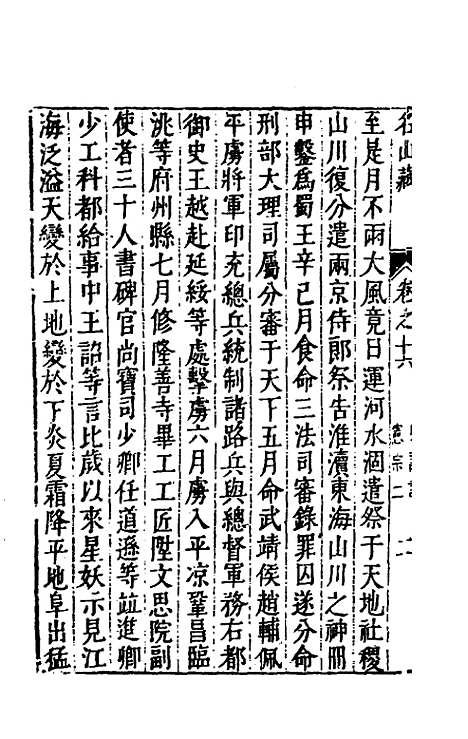 名山藏 卷之十六 憲宗二 二
至是月不雨大風竟日運河水涸遣祭于天地社稷
山川復分遣兩京侍郎祭告淮瀆東海山川之神冊
申鑿爲蜀王辛己月食命三法司審錄罪囚遂分命
刑部大理司屬分審于天下五月命武靖侯趙輔佩
平虜將軍印充總兵統制諸路兵與總督軍務右都
御史王越赴延綏等處擊虜六月虜入平凉鞏昌臨
洮等府州縣七月修隆善寺畢工工匠陞文思院副
使者三十人書碑官尚寶司少卿任道遜等竝進卿
少工科都給事中王詔等言比歲以來星妖示見江
海泛溢天變於上地變於下炎夏霜降平地阜出猛